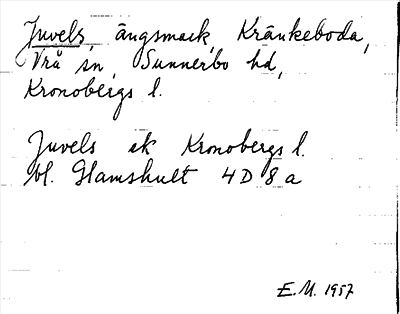 Juvels, ängsmark, Kränkeboda,
Vrå sn, Sunnerbo hd,
Kronobergs l.
Juvels ek Kronobergs l.
bl. Glamshult 4D 8a
E.M. 1957